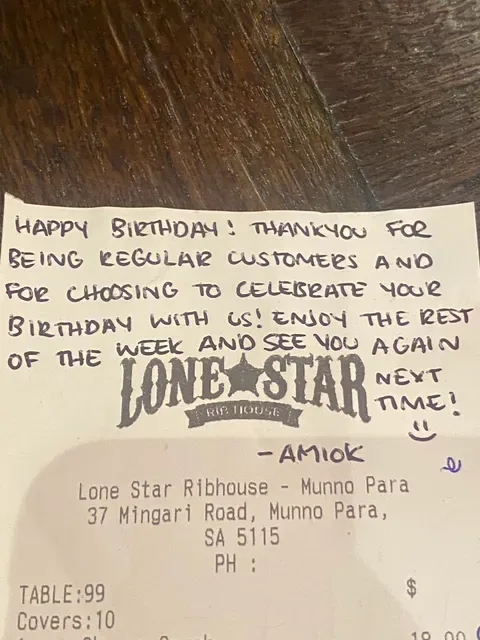 HAPPY BIRTHDAY! THANKYOU FOR
BEING REGULAR CUSTOMERS AND
FOR CHOOSING TO CELEBRATE YOUR
BIRTHDAY WITH US! ENJOY THE REST
OF THE WEEK AND SEE YOU AGAIN
NEXT
TIME!
LONE STAR
RIB HOUSE
-AMIOK
Lone Star Ribhouse - Munno Para
37 Mingari Road, Munno Para,
SA 5115
PH :
TABLE:99 $
Covers:10
18.00